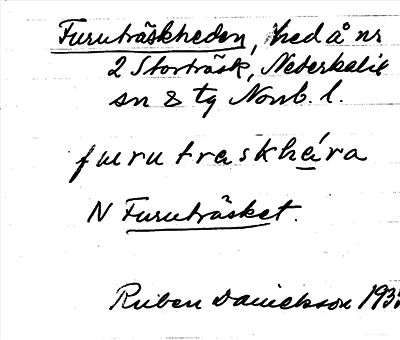 Furuträskheden, hed å nr
2 Storträsk, Nederkalix
sn & tg Norrb. l.
furuträskhéra
N Furuträsket.
Ruben Danielsson